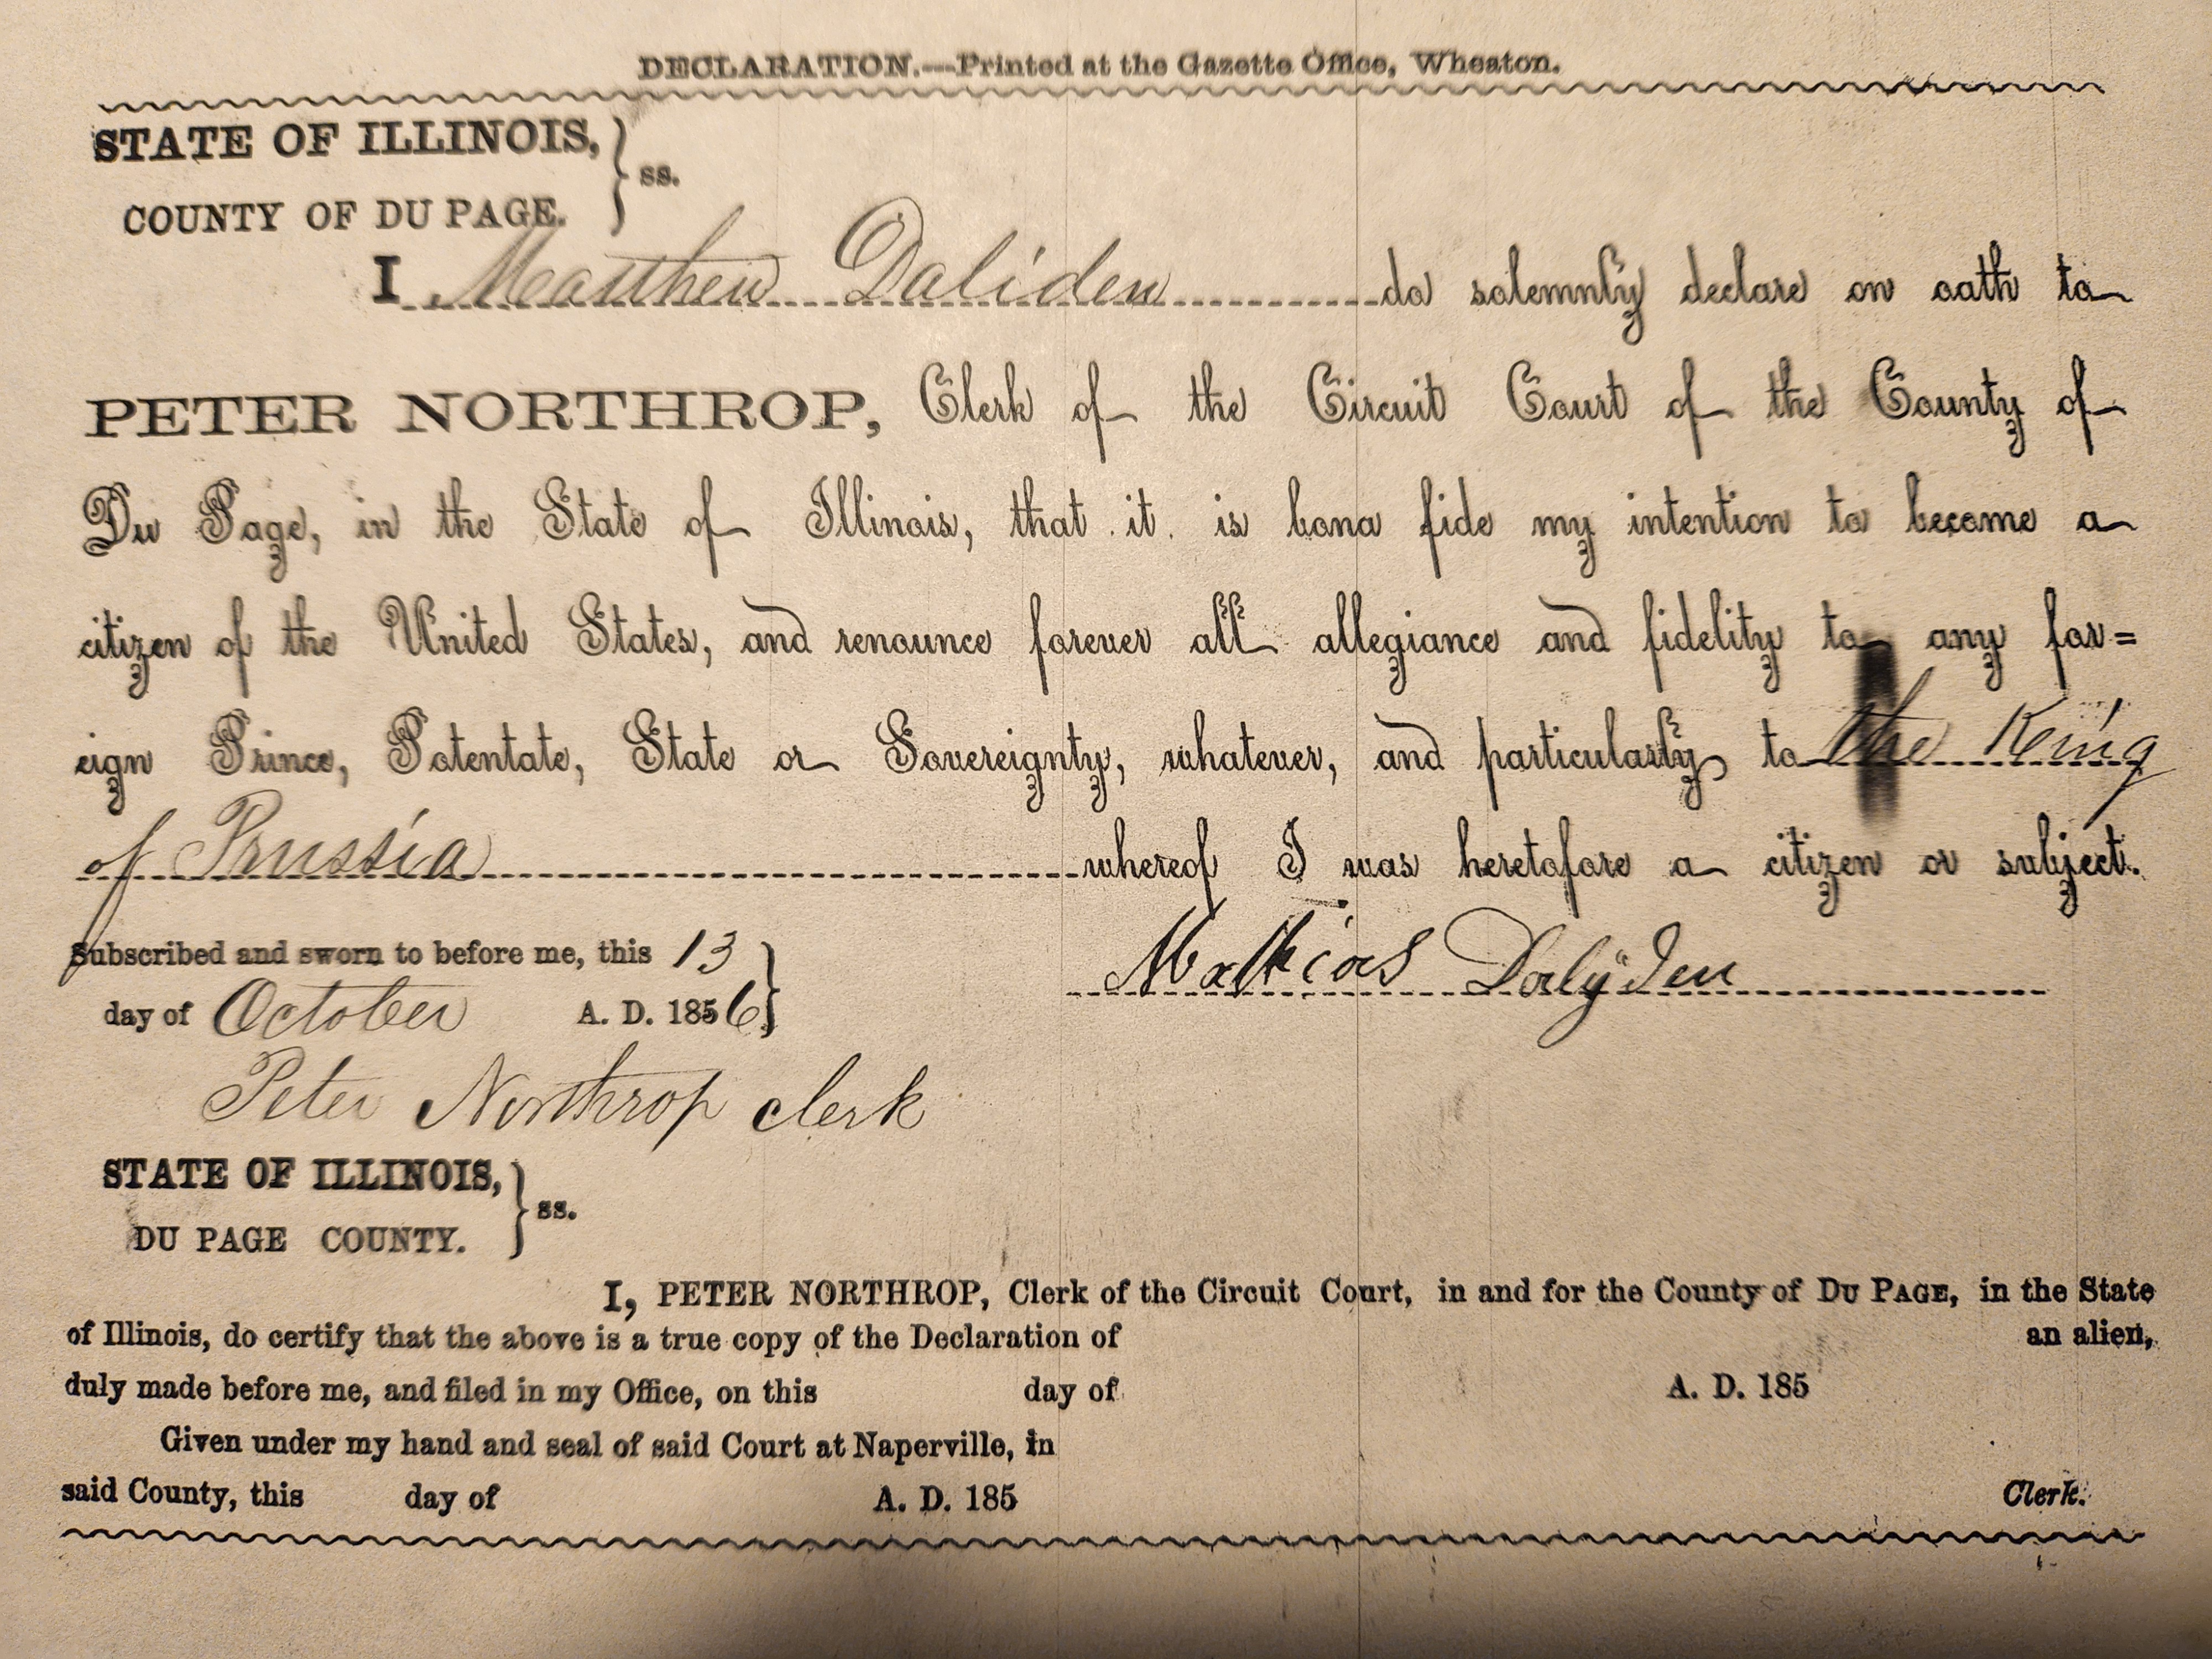 DECLARATION.—Printed at the Gazette Office, Wheaton.
STATE OF ILLINOIS,
COUNTY OF DU PAGE. } ss.
I Matthew Daliden do solemnly declare on oath to
PETER NORTHROP, Clerk of the Circuit Court of the County of
Du Page, in the State of Illinois, that it is bona fide my intention to become a
citizen of the United States, and renounce forever all allegiance and fidelity to any for=
eign Prince, Potentate, State or Sovereignty, whatever, and particularly to the King
of Prussia whereof I was heretofore a citizen or subject.
Subscribed and sworn to before me, this 13
day of October A. D. 1856 }
Mathias Dalÿden
Peter Northrop clerk
STATE OF ILLINOIS,
DU PAGE COUNTY. } ss.
I, PETER NORTHROP, Clerk of the Circuit Court, in and for the County of DU PAGE, in the State
of Illinois, do certify that the above is a true copy of the Declaration of an alien,
duly made before me, and filed in my Office, on this day of A. D. 185
Given under my hand and seal of said Court at Naperville, in
said County, this day of A. D. 185 Clerk.